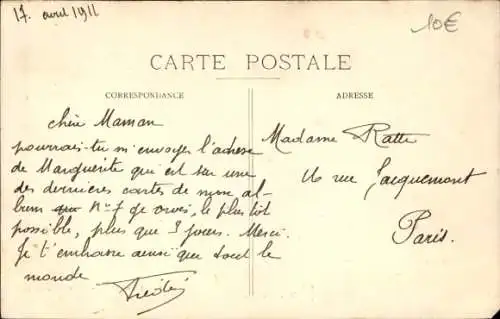 17. avril 1911
10€
CARTE POSTALE
CORRESPONDANCE
ADRESSE
chère Maman
pourrais-tu m'envoyer l'adresse
de Marguerite qui est sur une
des dernières cartes de mon al-
bum N° 7 de vues, le plus tôt
possible, plus que 3 jours. Merci.
Je t'embrasse ainsi que tout le
monde
Madame Ratte
16 rue Jacquemont
Paris.